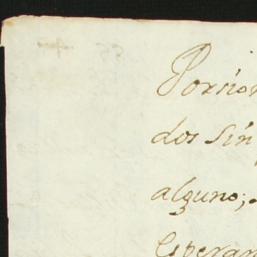 Porsio
dos sin
alguno;
Esperan